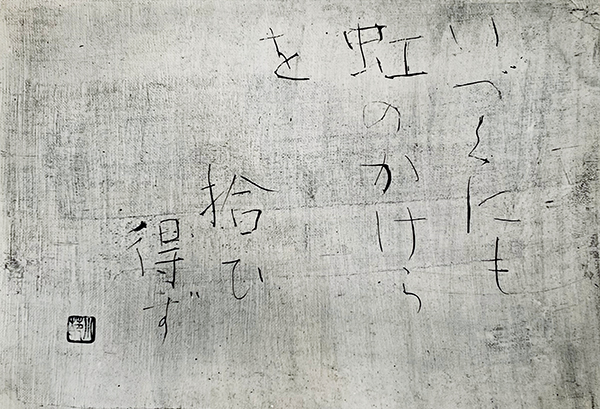 いづくにも
虹のかけら
を
拾ひ
得ず